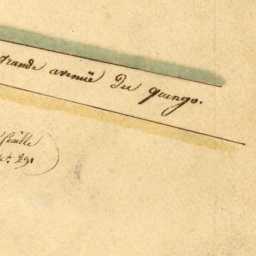 grande avenüe du quengo.
feuille
291